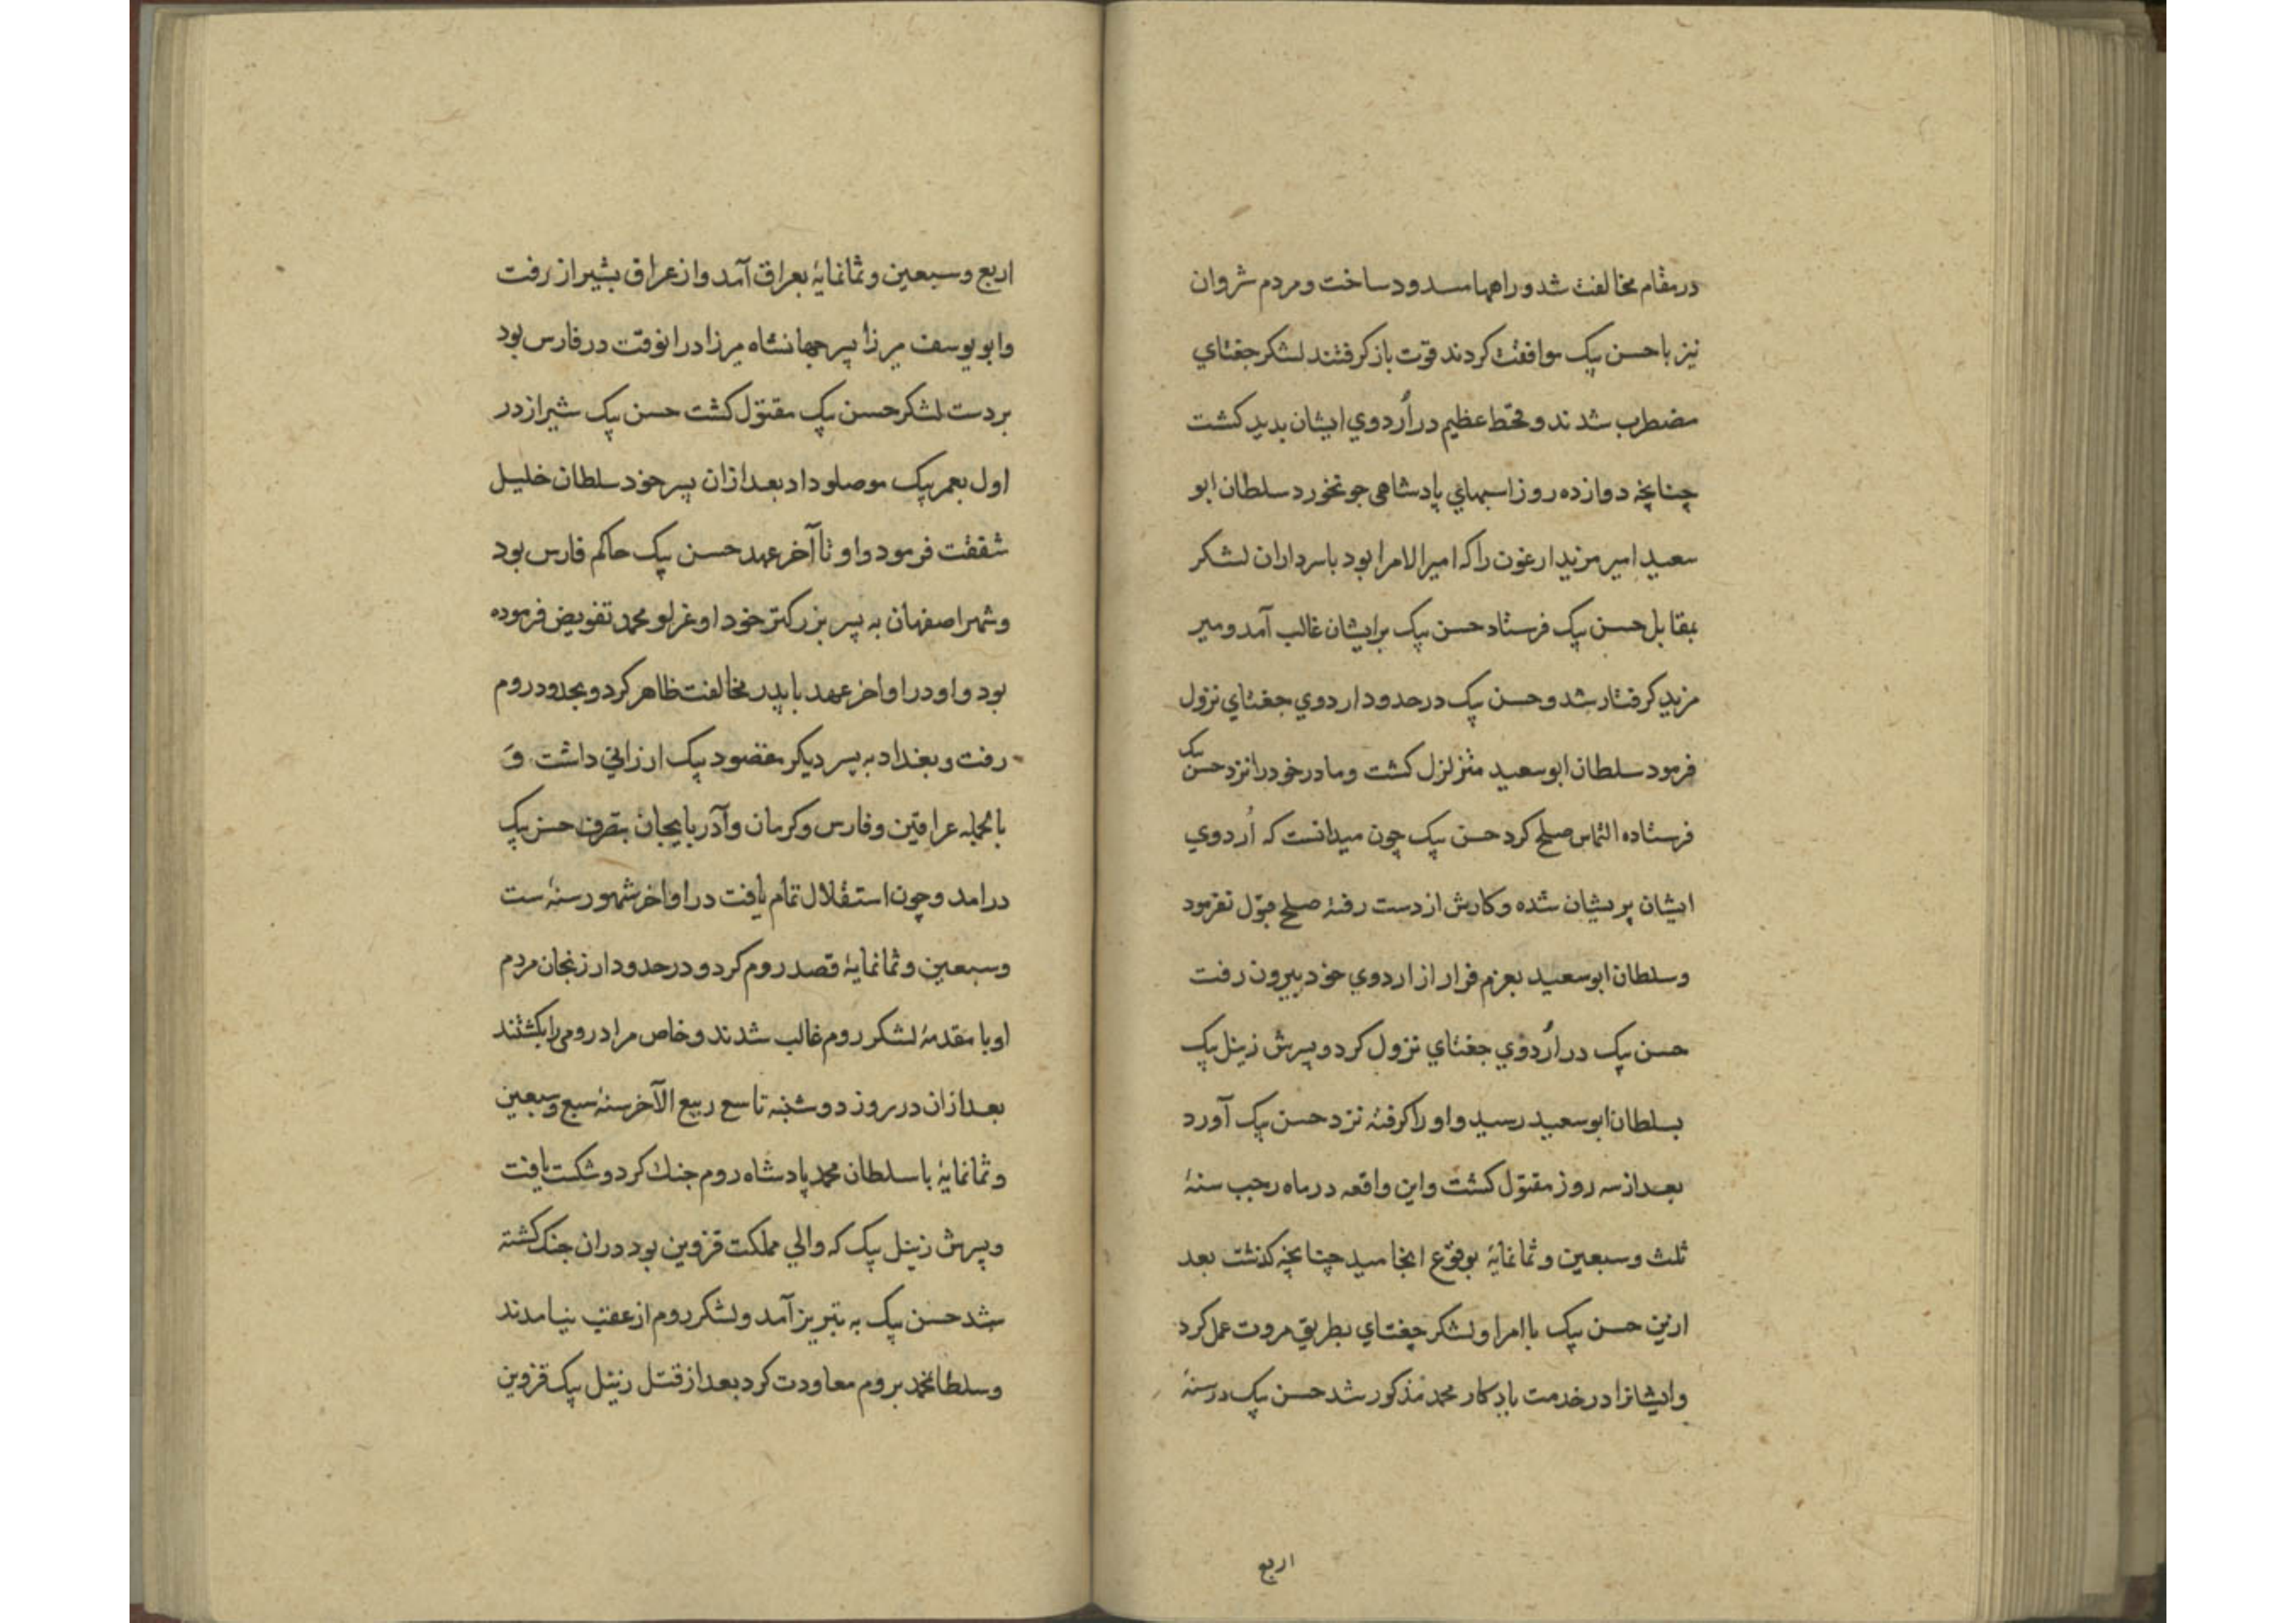 در مقام مخالفت شد و راهها مسدود ساخت و مردم شروان
نیز با حسن پیک موافقت کردند قوت باز کرفتند لشکر جغتاي
مضطرب شدند و قحط عظیم در اُردوي ایشان بدید کشت
چنانچه دوازده روز اسبهاي پادشاهی جو نخورد سلطان ابو
سعید امیر مزید ارغون را که امیرالامرا بود با سرداران لشکر
بمقابل حسن پیک فرستاد حسن پیک بر ایشان غالب آمد و میر
مزید کرفتار شد و حسن پیک در حدود اردوي جغتاي نزول
فرمود سلطان ابوسعید متزلزل کشت و مادر خود را نزد حسن پیک
فرستاده التماس صلح کرد حسن پیک چون میدانست که اُردوي
ایشان پریشان شده و کارش از دست رفته صلح قبول نفرمود
و سلطان ابوسعید بعزم فرار از اردوي خود بیرون رفت
حسن پیک در اُردوي جغتاي نزول کرد و پسرش زینل پیک
بسلطان ابوسعید رسید و او را کرفته نزد حسن پیک آورد
بعد از سه روز مقتول کشت و این واقعه در ماه رجب سنهٔ
ثلث و سبعین و ثمانمایهٔ بوقوع انجامید چنانچه کذشت بعد
ازین حسن پیک با امرا و لشکر جغتاي بطریق مروت عمل کرد
و ایشانرا در خدمت یادکار محمد مذکور شد حسن پیک در سنهٔ
اربع
اربع و سبعین و ثمانمایهٔ بعراق آمد و از عراق بشیراز رفت
و ابو یوسف میرزا پسر جهانشاه میرزا درانوقت در فارس بود
بر دست لشکر حسن پیک مقتول کشت حسن پیک شیراز در
اول بعمر پیک موصلو داد بعد ازان بپسر خود سلطان خلیل
شفقت فرمود و او تا آخر عهد حسن پیک حاکم فارس بود
و شهر اصفهان به پسر بزرکتر خود اوغرلو محمد تفویض فرموده
بود و او در اواخر عهد با پدر مخالفت ظاهر کرد و بحدود روم
رفت و بغداد به پسر دیکر مقصود پیک ارزاني داشت و
بالجمله عراقین و فارس و کرمان و آذربایجان بتصرف حسن پیک
درامد و چون استقلال تمام یافت در اواخر شهور سنهٔ ست
و سبعین و ثمانمایهٔ قصد روم کرد و در حدود ارزنجان مردم
او با مقدمهٔ لشکر روم غالب شدند و خاص مراد رومی را بکشتند
بعد ازان در روز دوشنبه تاسع ربیع الآخر سنهٔ سبع و سبعین
و ثمانمایهٔ با سلطان محمد پادشاه روم جنك کرد و شکست یافت
و پسرش زینل پیک که والي مملکت قزوین بود دران جنك کشته
شد حسن پیک به تبریز آمد و لشکر روم از عقب نیامدند
و سلطانمحمد بروم معاودت کرد بعد از قتل زینل پیک قزوین